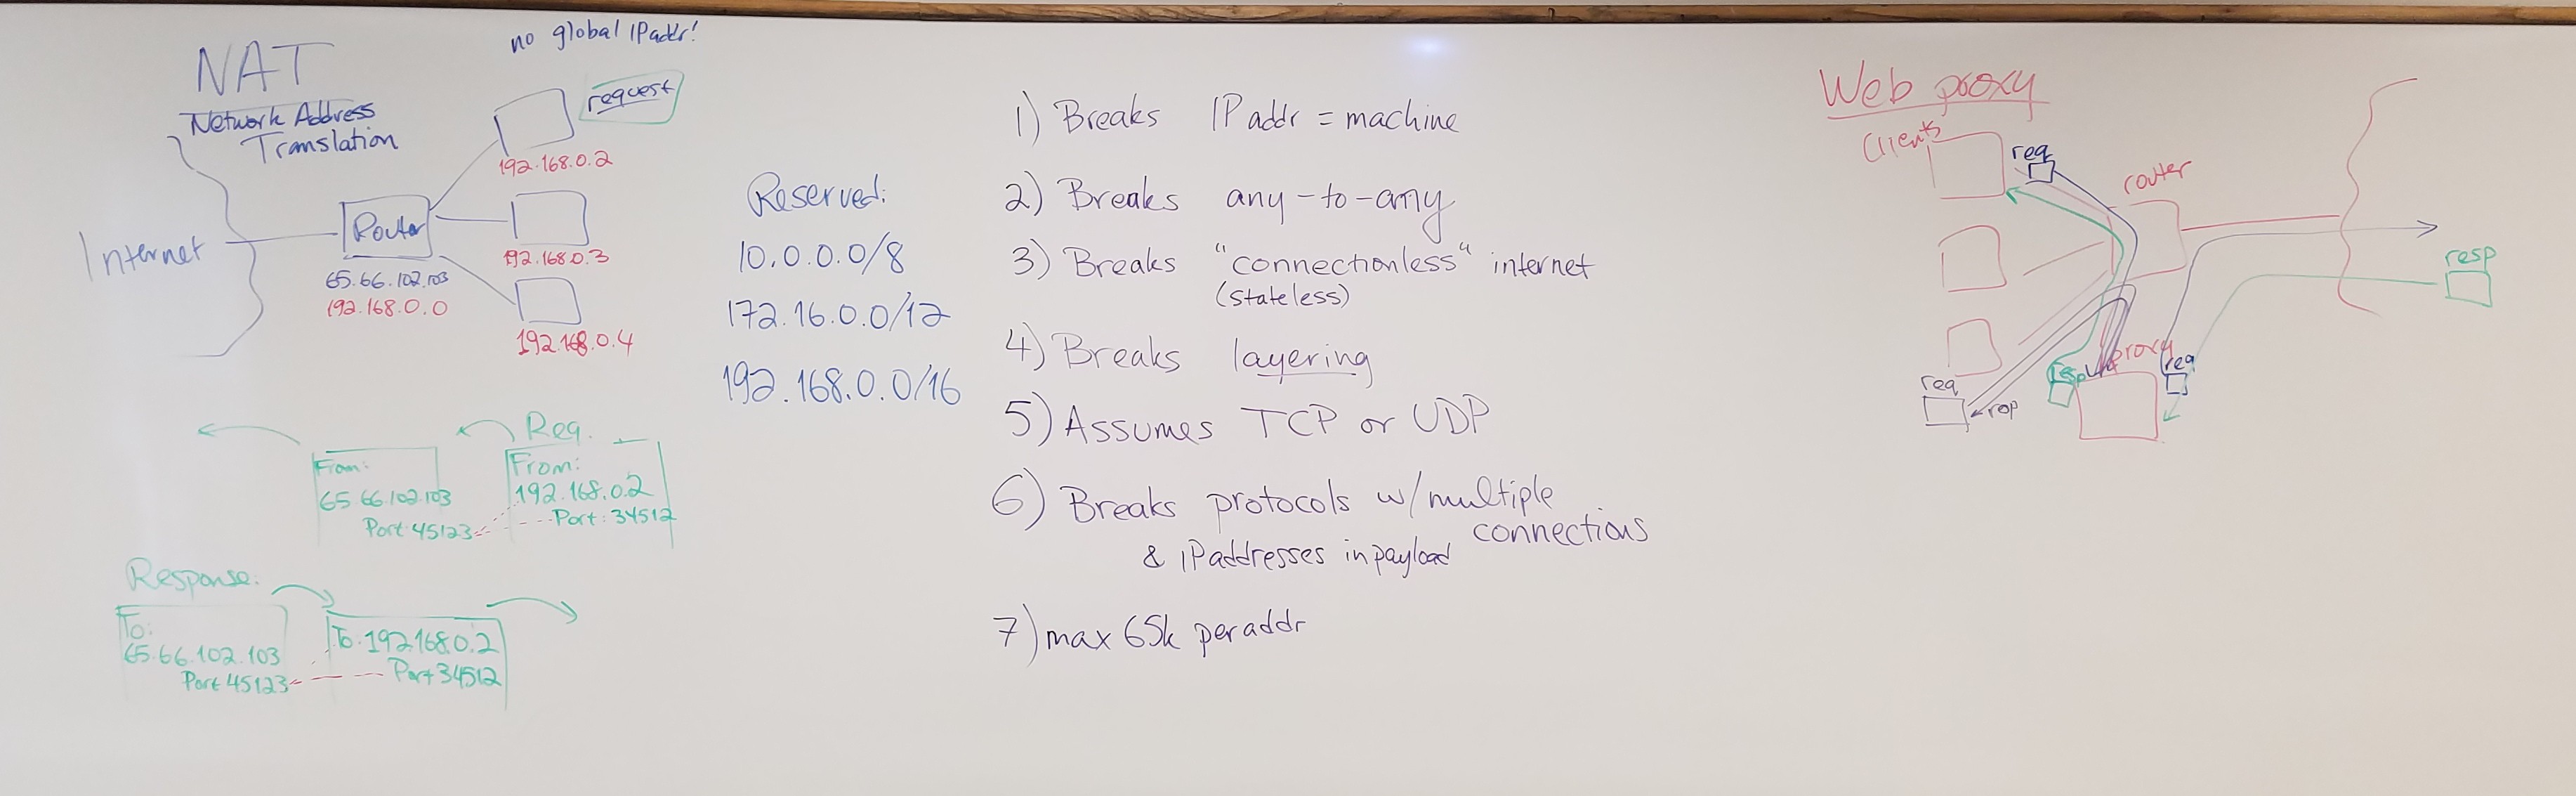 NAT
Network Address
Translation
no global IPaddr!
request
192.168.0.2
Internet
Router
65.66.102.103
192.168.0.0
192.168.0.3
192.168.0.4
Req.
From:
65.66.102.103
Port:45123
From:
192.168.0.2
Port: 34512
Response:
To:
65.66.102.103
Port 45123
To: 192.168.0.2
Port 34512
Reserved:
10.0.0.0/8
172.16.0.0/12
192.168.0.0/16
1) Breaks IP addr = machine
2) Breaks any-to-any
3) Breaks "connectionless" internet
(stateless)
4) Breaks layering
5) Assumes TCP or UDP
6) Breaks protocols w/multiple
connections
& IPaddresses in payload
7) max 65k per addr
Web proxy
Clients
req
router
resp
proxy
req
resp
req